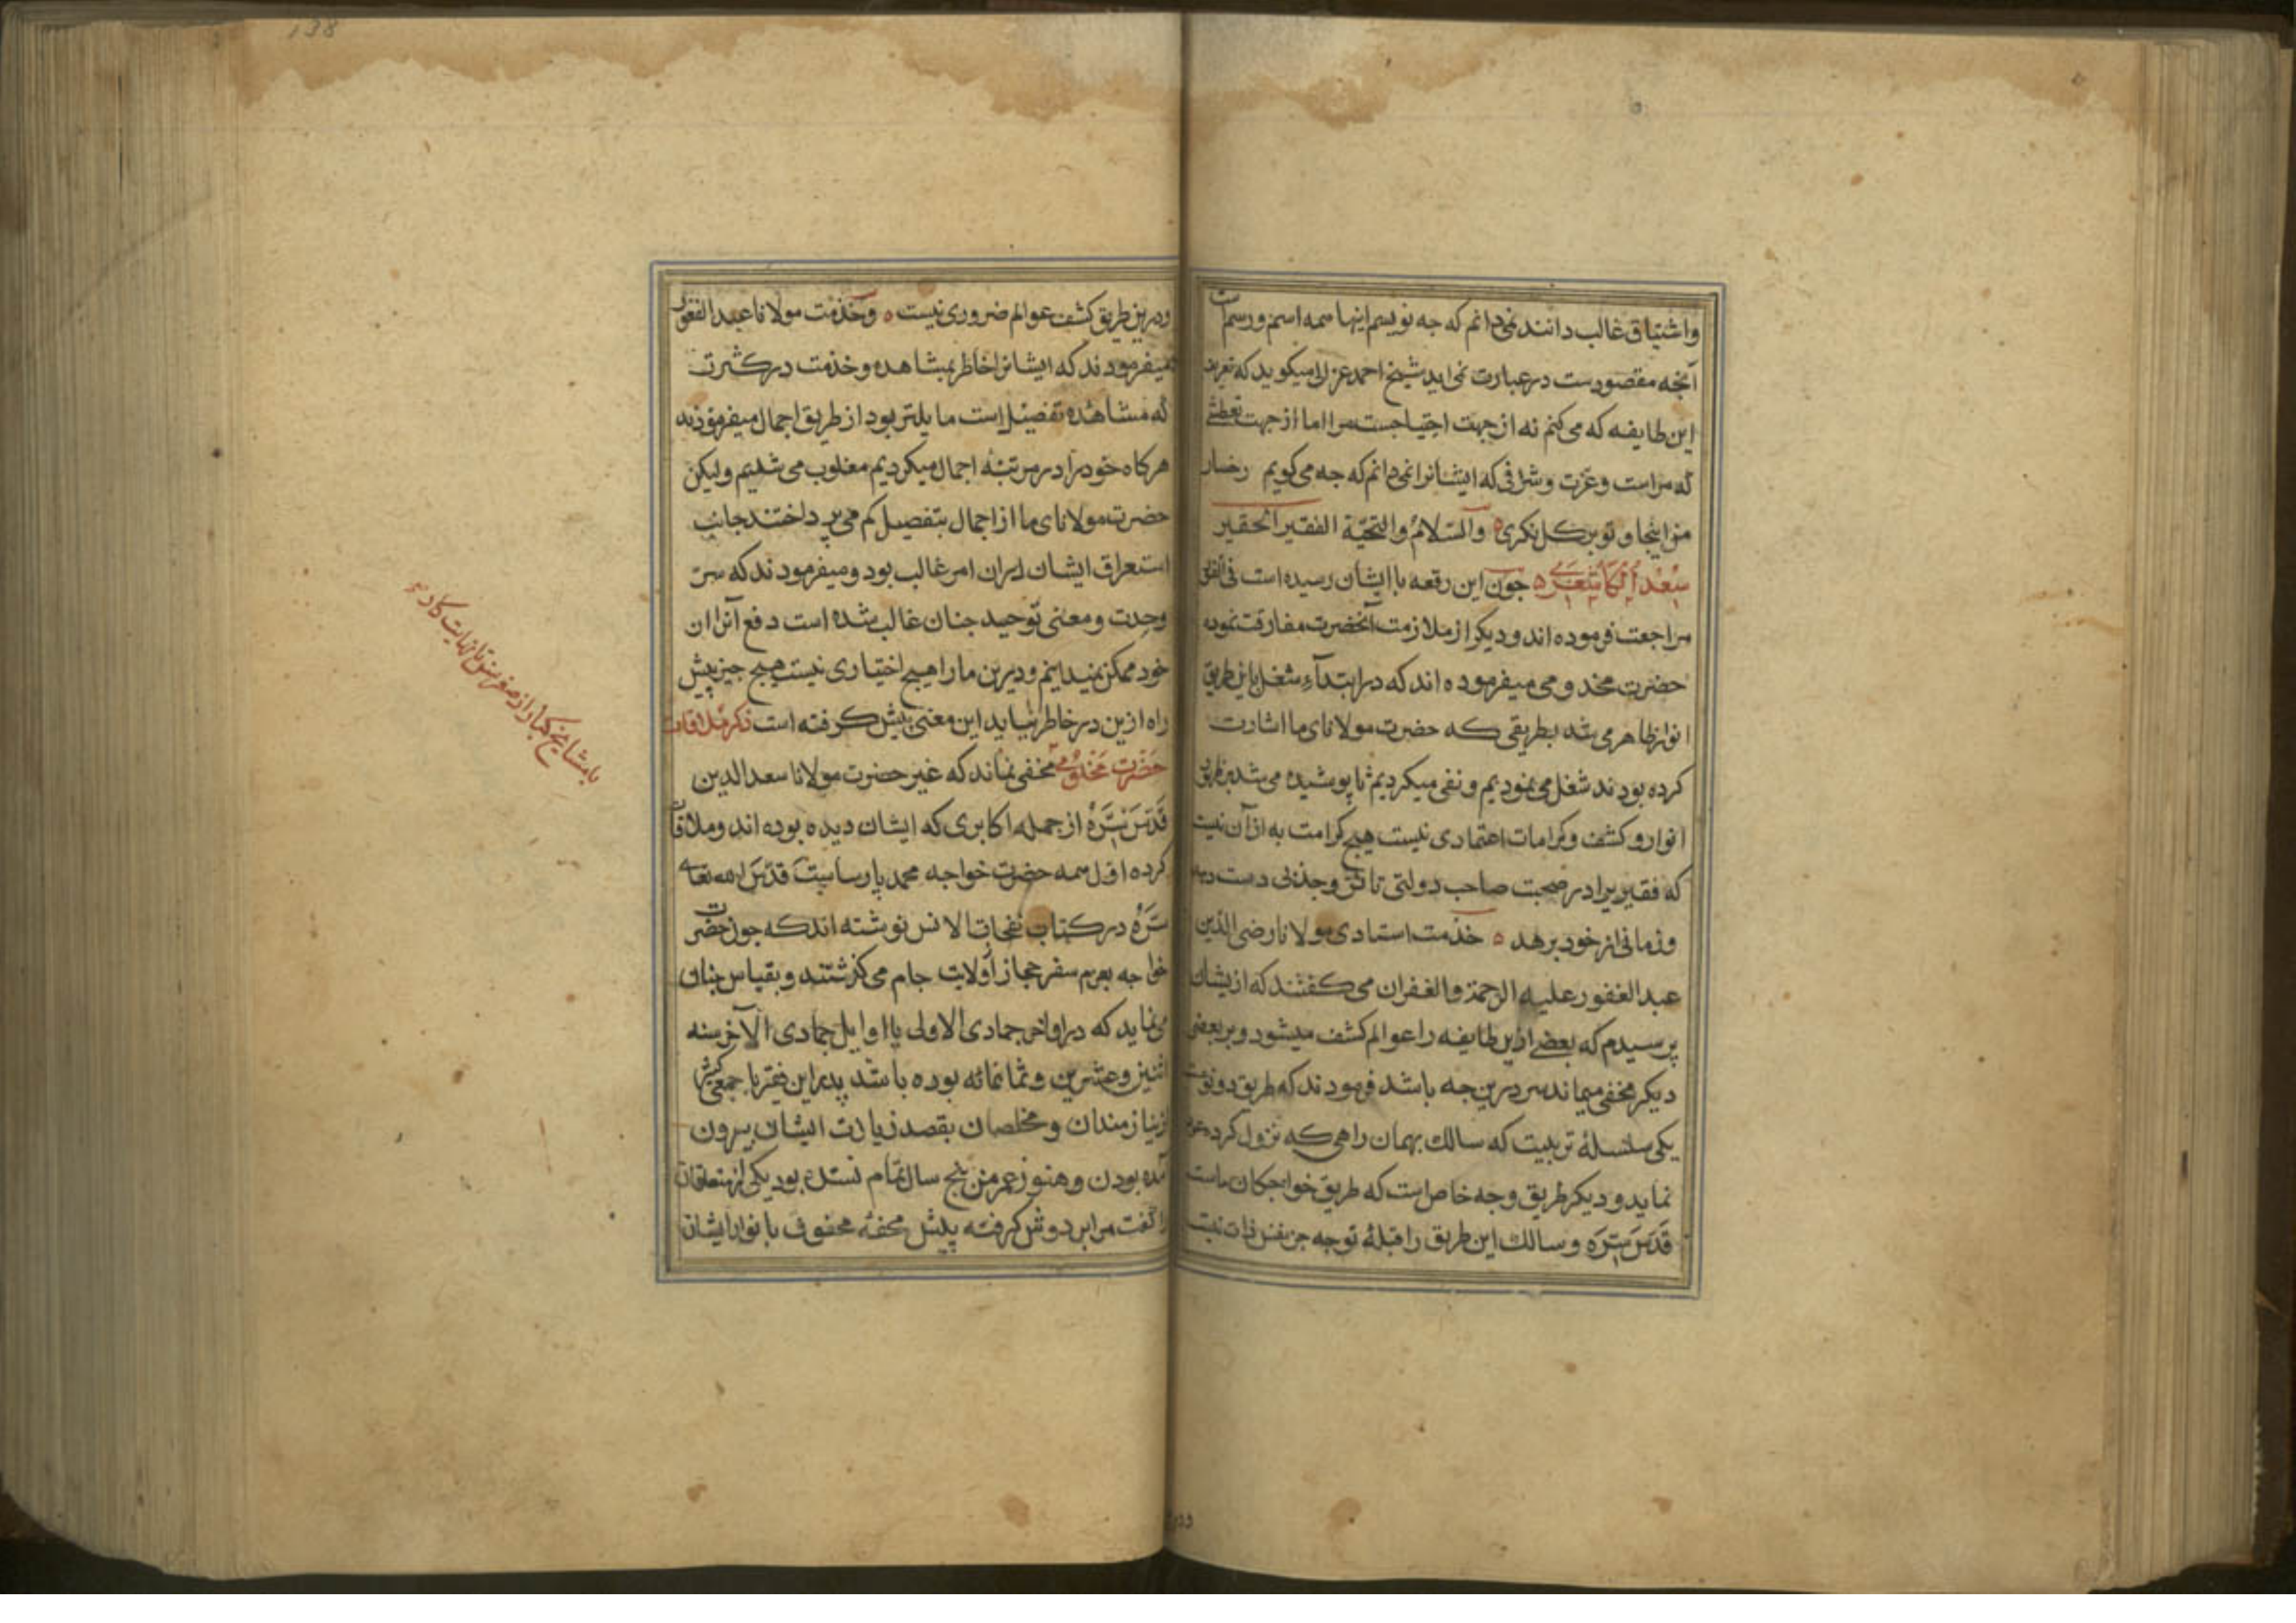 واشتیاق غالب دانند نمی‌دانم که جه نویسم اینها همه اسم ورسم است
آنجه مقصودست در عبارت نمی اید شیخ احمد غزالی میکوید که تعریف
این طایفه که می کنم نه از جهت احتیاجست مرا اما از جهت تعطشی
که مراست وعزت وشرافی که ایشانرا نمی‌دانم که جه می کویم رخسار
من اینجا و تو بر کل نکری ه والسلام والتحیة الفقیر الحقیر
سعد الکاشغری ه جون این رقعه با ایشان رسیده است فی الفور
مراجعت فرموده اند و دیکر از ملازمت آنحضرت مفارقت نموده
حضرت مخدومی میفرموده اند که در ابتدآء شغل باین طریق
انوار ظاهر می شد بطریقی که حضرت مولانای ما اشارت
کرده بودند شغل می نمودیم و نفی میکردیم تا پوشیده می شد بر ظهور
انوار و کشف وکرامات اعتمادی نیست هیج کرامت به از آن نیست
که فقیریرا در صحبت صاحب دولتی تاثر و جذبی دست دهد
وزمانی از خود برهد ه خدمت استادی مولانا رضی الدین
عبد الغفور علیه الرحمة والغفران می کفتند که از یشان
پرسیدم که بعضی ازین طایفه را عوالم کشف میشود و بر بعضی
دیکر مخفی میماند سر درین جه باشد فرمودند که طریق دو نوعست
یکی سلسلهٔ تربیت که سالک بهمان راهی که نزول کرده عروج
نماید و دیکر طریق وجه خاص است که طریق خواجکان ماست
قدس سره و سالک این طریق را قبلهٔ توجه جز نفس ذات نیست
138
ودرین طریق کشف عوالم ضروری نیست ه وخدمت مولانا عبد الغفور
میفرمودند که ایشانرا خاطر بمشاهده وخدمت در کثرت
که مشاهده تفصیل است مایلتر بود از طریق اجمال میفرمودند
هر کاه خود را در مرتبهٔ اجمال میکردیم مغلوب می شدیم ولیکن
حضرت مولانای ما از اجمال بتفصیل کم می پرداختند جانب
استغراق ایشان ایران امر غالب بود ومیفرمودند که سر
وحدت ومعنی توحید جنان غالب شده است دفع آنرا ان
خود ممکن نمیدانیم ودرین ما را هیچ اختیاری نیست هیج جیز پیش
راه ازین در خاطر نیاید این معنی پیش کرفته است ذکر ملاقات
حضرت مخدومی مخفی نماند که غیر حضرت مولانا سعد الدین
قدس سره از جمله اکابری که ایشان دیده بوده اند وملاقات
کرده اول همه حضرت خواجه محمد پارساست قدس الله تعالی
سره در کتاب نفحات الانس نوشته اند که جون حضرت
خواجه بعزم سفر حجاز از ولایت جام می کذشتند و بقیاس جنان
می نماید که در اواخر جمادی الاولی یا اوایل جمادی الآخر سنه
اثنین وعشرین وثمانمائه بوده باشد پدر این فقیر با جمعی کثیر
از نیازمندان ومخلصان بقصد زیارت ایشان بیرون
آمده بودن وهنوز عمر من پنج سال تمام نشده بود یکی از متعلقان
را کفت مرا بر دوش کرفته پیش محفه محفوف بانوار ایشان
با مشایخ کبار از صغر سن تا نهایت کار